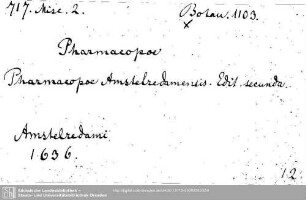 717. Misc. 2.
Botan. 1103.
x
Pharmacopoe
Pharmacopoe Amstelredamensis. Edit. secunda.
Amstelredami
1636.
12
Sächsische Landesbibliothek -
Staats- und Universitätsbibliothek Dresden